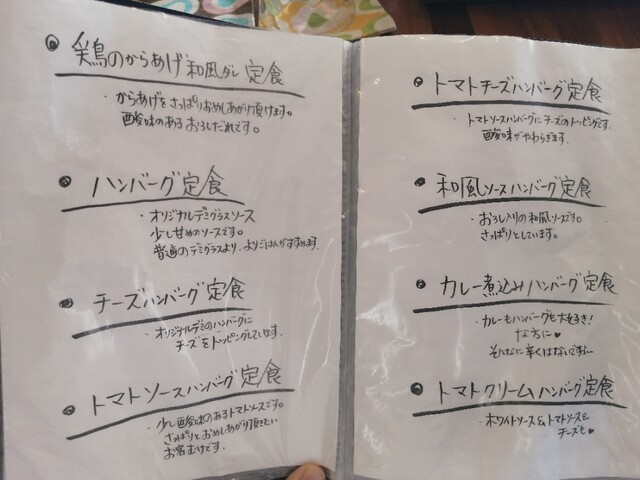 鶏のからあげ 和風ダレ 定食
・からあげをさっぱりおめしあがり頂けます。
酸味のあるおろしだれです。
ハンバーグ定食
・オリジナルデミグラスソース
少し甘めのソースです。
普通のデミグラスより、よりごはんがすすみます。
チーズハンバーグ定食
・オリジナルデミのハンバーグに
チーズをトッピングしています。
トマトソースハンバーグ定食
・少し酸味のあるトマトソースです。
さっぱりとおめしあがり頂きたい
お客むけです。
トマトチーズハンバーグ定食
・トマトソースハンバーグにチーズのトッピングです。
酸味がやわらぎます。
和風ソースハンバーグ定食
・おろし入りの和風ソースです。
さっぱりとしています。
カレー煮込みハンバーグ定食
・カレーもハンバーグも大好き!
な方に♥
そんなに辛くはないですよ〜
トマトクリームハンバーグ定食
・ホワイトソース&トマトソース&
チーズも♥